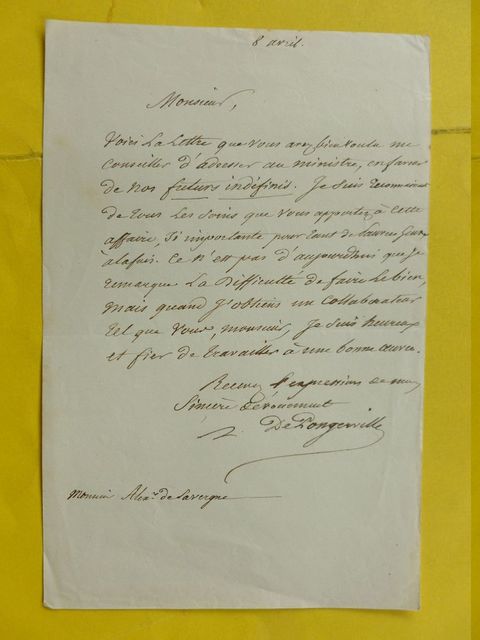 8 avril.
Monsieur,
Voici la lettre que vous avez bien voulu me
conseiller d'adresser au ministre, en faveur
de nos futurs indéfinis. Je suis reconnaissant
de tous les soins que vous apportez à cette
affaire, si importante pour tant de pauvres gens
à la fois. Ce n'est pas d'aujourdhui que je
remarque la difficulté de faire le bien,
mais quand j'obtiens un collaborateur
tel que vous, monsieur, je suis heureux
et fier de travailler à une bonne œuvre.
Recevez l'expression de mon
sincère dévouement
De Pongerville
Monsieur Alex.re de Lavergne